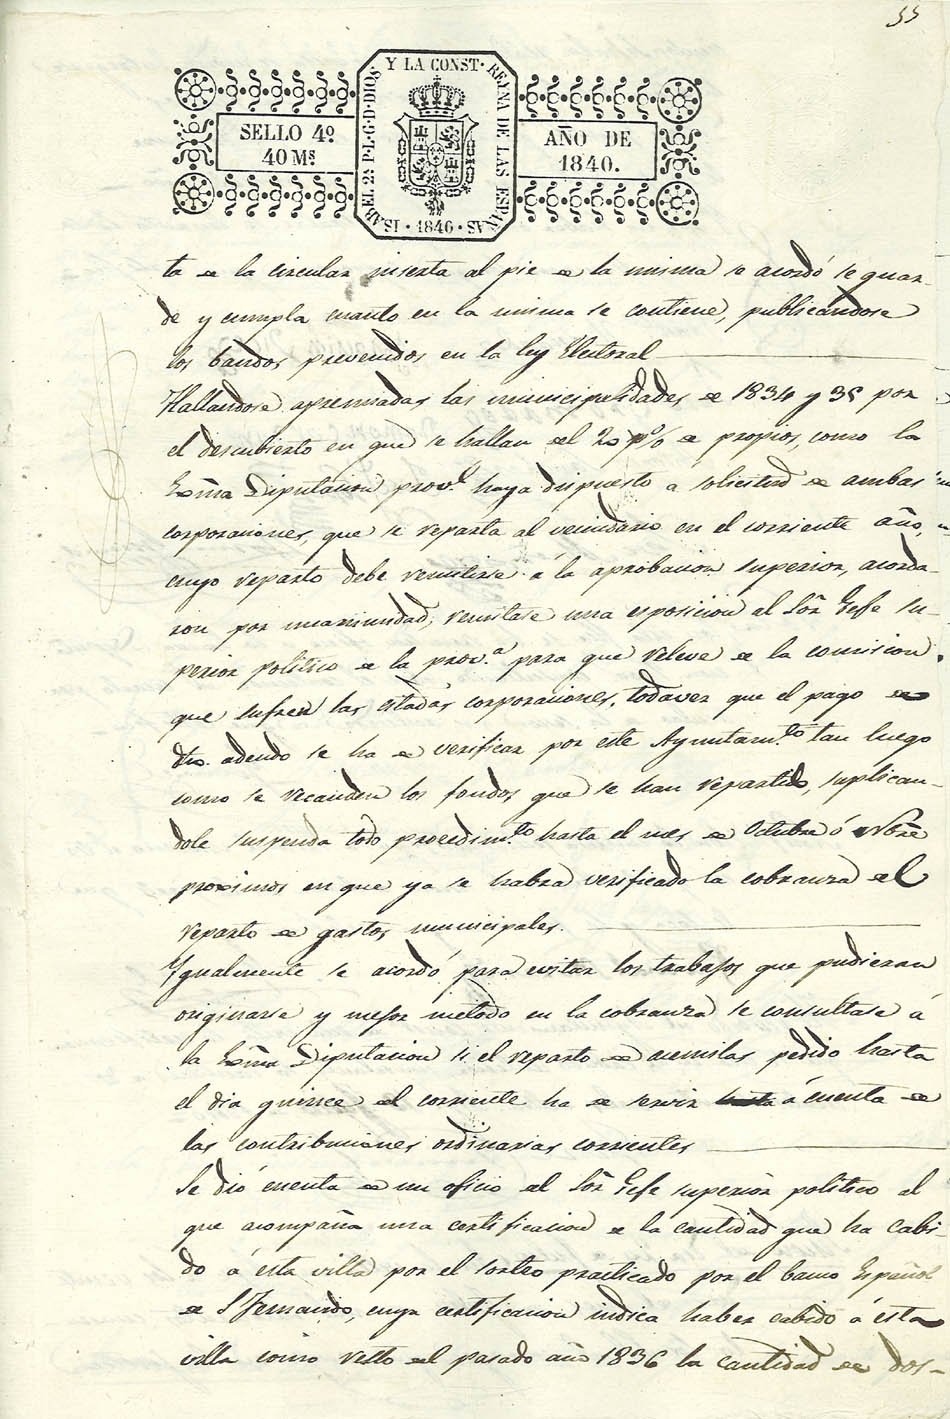 55
ISABEL 2ª P.L.G.D.DIOS Y LA CONST. REYNA DE LAS ESPAÑAS
SELLO 4º
40 Ms.
AÑO DE
1840.
1846
ta de la circular inserta al pie de la misma se acordó se guar-
de y cumpla cuanto en la misma se contiene, publicandose
los bandos prevenidos en la ley Electoral
Hallandose apremiadas las municipalidades de 1834 y 35 por
el descubierto en que se hallan del 20 p% de propios, como la
Exma Diputacion provl. haya dispuesto a solicitud de ambas
corporaciones, que se reparta al vecindario en el corriente año,
cuyo reparto debe remitirse á la aprobacion superior, acorda-
ron por unanimidad, remitase una esposicion al Sor. Gefe su-
perior politico de la prova. para que releve de la comision
que sufren las citadas corporaciones, todavez que el pago de
dho. adeudo se ha de verificar por este Ayuntamto. tan luego
como se recauden los fondos que se han repartido, suplican-
dole suspenda todo procedimto. hasta el mes de Octubre ó Nobre
proximos en que ya se habra verificado la cobranza del
reparto de gastos municipales.
Igualmente se acordó para evitar los trabajos que pudieran
originarse y mejor metodo en la cobranza se consultase á
la Exma Diputacion si el reparto de acemilas pedido hasta
el dia quince del corriente ha de servir á cuenta de
las contribuciones ordinarias corrientes
Se dió cuenta de un oficio del Sor. Gefe superior politico al
que acompaña una certificacion de la cantidad que ha cabi-
do á esta villa por el sorteo practicado por el banco Español
de S. Fernando, cuya certificacion indica haber cabido á esta
villa como resto del pasado año 1836 la cantidad de dos-